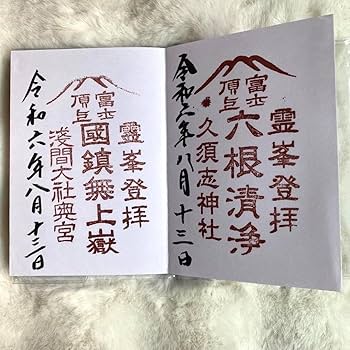 靈峯登拝
富士
頂上
六根清浄
久須志神社
令和六年八月十三日
靈峯登拝
富士
頂上
國鎮無上嶽
淺間大社奥宮
令和六年八月十三日